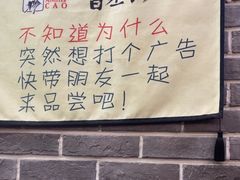 CAO
不知道为什么
突然想打个广告
快带朋友一起
来品尝吧！